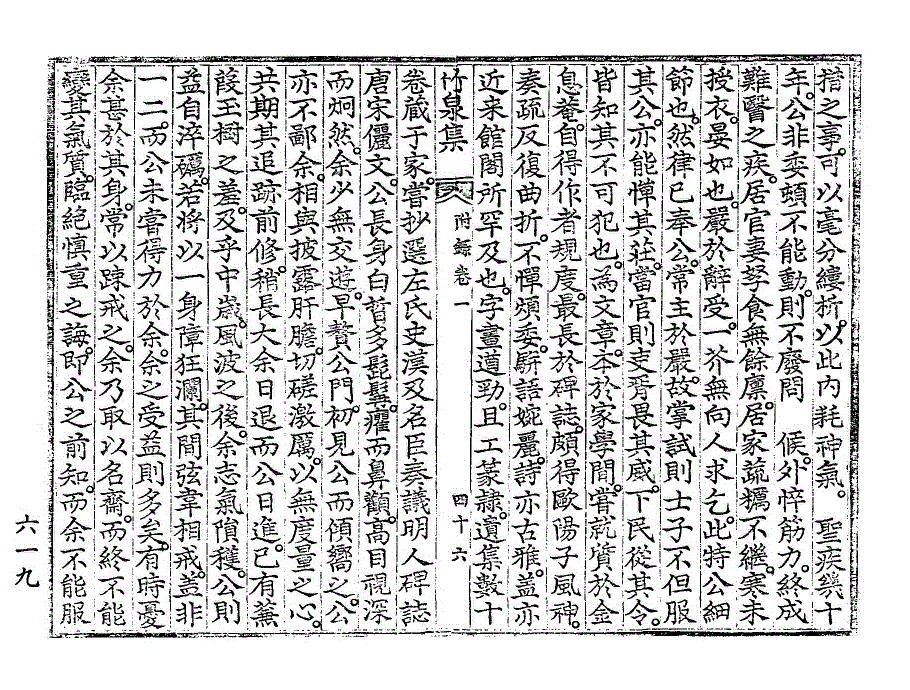 揩之事。可以毫分縷析。以此內耗神氣。 聖疾幾十
年。公非委頓不能動。則不廢問 候。外悴筋力。終成
難醫之疾。居官妻孥食無餘廩。居家蔬糲不繼。寒未
授衣。晏如也。嚴於辭受。一芥無向人求乞。此特公細
節也。然律已奉公。常主於嚴。故掌試則士子不但服
其公。亦能憚其莊。當官則吏胥畏其威。下民從其令。
皆知其不可犯也。為文章。本於家學。間嘗就質於金
息菴。自得作者規度。最長於碑誌。頗得歐陽子風神。
奏疏反復曲折。不憚煩委。騈語婉麗。詩亦古雅。蓋亦
近来館閣所罕及也。字畫遒勁。且工篆隷。遺集數十
竹泉集 附錄卷一 四十六
卷藏于家。嘗抄選左氏史漢及名臣奏議明人碑誌
唐宋儷文。公長身白晳多髭髯。癯而鼻顴高。目視深
而炯然。余少無交遊。早贅公門。初見公而傾嚮之。公
亦不鄙余。相與披露肝膽。切磋激厲。以無度量之心。
共期其追跡前修。稍長大余日退而公日進。已有蕪
葭玉樹之差。及乎中歲。風波之後。余志氣隕穫。公則
益自淬礪。若將以一身障狂瀾。其間弦韋相戒。蓋非
一二。而公未嘗得力於余。余之受益則多矣。有時憂
余甚於其身。常以踈戒之。余乃取以名齋。而終不能
變其氣質。臨絕愼重之誨。即公之前知。而余不能服
六一九